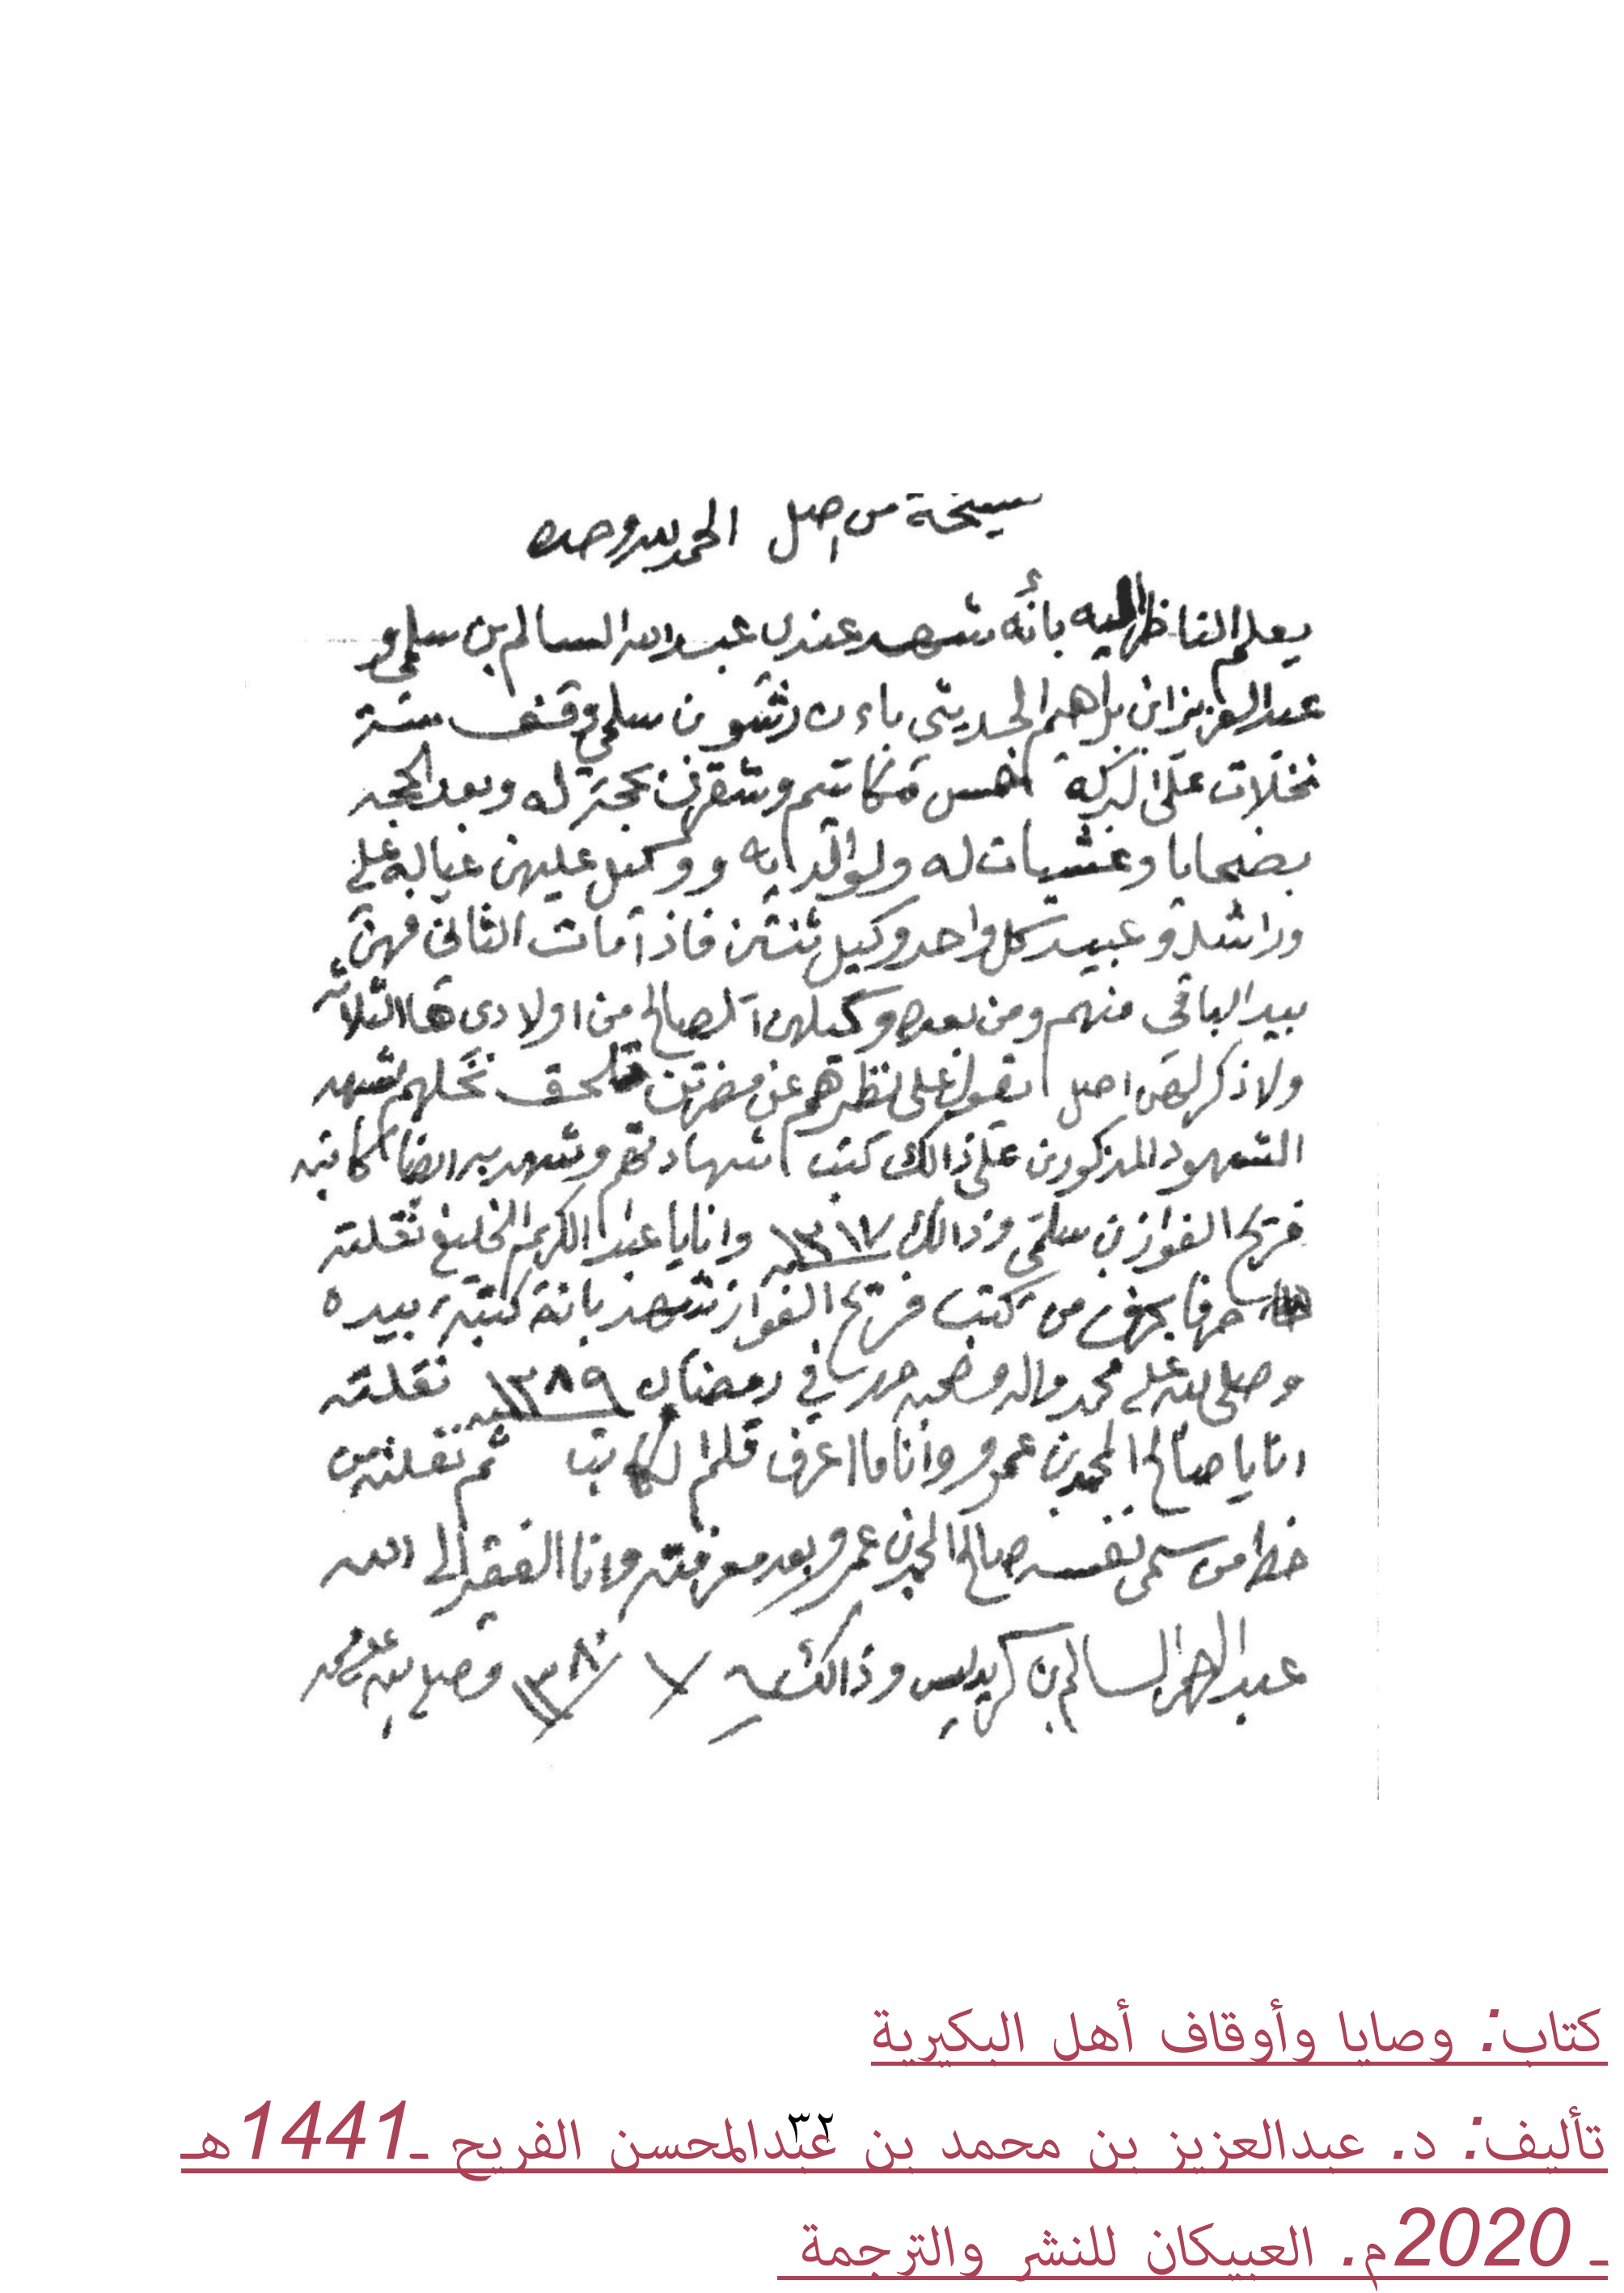 نسخة من اصل الحمد لله وحده
يعلم الناظر اليه بأنه شهد عندي عبدالله السالم بن سلمي و
عبدالعزيز ابن براهيم الحديثي باءن سلمي وقف ستة
نخلات على البركة خمس مكاتيم وشقر بحجة له وبعد الحجه
بضحايا وعشيات له ولوالديه ووكيل عليهن عياله علي
وراشد وعبيد كل واحد وكيل ثنتين فاذا مات الثاني فهن
بيد الباقي منهم ومن بعده وكيلهن الصالح من اولادي هاالثلاثه
ولا ذكر لهن اصل يقول على نظرهم عن مضرتن تلحق نخلهم شهد
الشهود المذكورين على ذالك كتب شهادتهم وشهد به ايضا كاتبه
فريح الفواز بن سلمي وذالك ١٣١٧ وانايا عبدالكريم الخليفي نقلته
حرفا بحرف من كتب فريح الفواز نشهد بانه كتبه بيده
وصلى الله على محمد واله وصحبه في رمضان ١٣٨٩ نقلته
انايا صالح المحمد بن عمرو وانا ما اعرف قلم الكاتب ثم نقلته من
خط من سمى نفسه صالح المحمد بن عمرو بعد معرفته وانا الفقير الى الله
عبدالرحمن السالم بن كريديس وذالك ٧ / ١٣٨٠ وصلى الله على محمد
كتاب: وصايا وأوقاف أهل البكيرية
٣٢
تأليف: د. عبدالعزيز بن محمد بن عبدالمحسن الفريح ـ1441هـ
ـ 2020م. العبيكان للنشر والترجمة